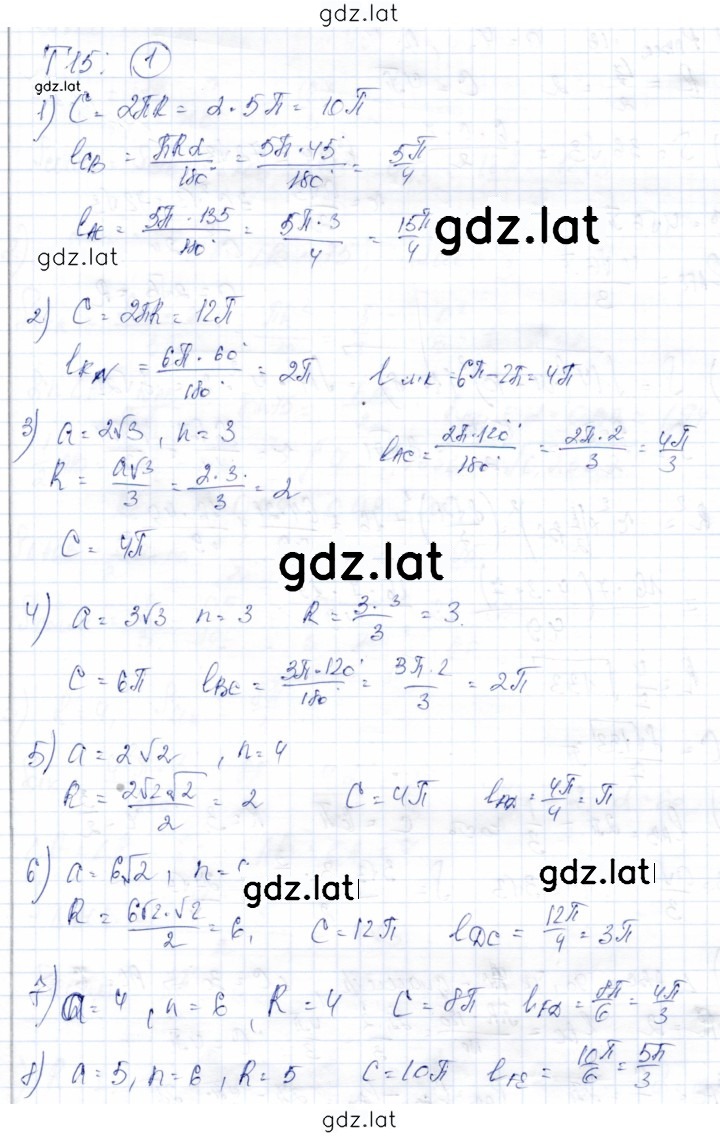 gdz.lat
T15: 1
gdz.lat
1) C = 2πR = 2 · 5π = 10π
l_CB = πRα/180° = 5π · 45°/180° = 5π/4
l_AC = 5π · 135/180° = 5π · 3/4 = 15π/4
gdz.lat
gdz.lat
2) C = 2πR = 12π
l_KN = 6π · 60°/180° = 2π l_MK = 6π - 2π = 4π
3) a = 2√3, n = 3 l_AC = 2π · 120°/180° = 2π · 2/3 = 4π/3
R = a√3/3 = 2 · 3/3 = 2
C = 4π
gdz.lat
4) a = 3√3 n = 3 R = 3 · 3/3 = 3.
C = 6π l_BC = 3π · 120°/180° = 3π · 2/3 = 2π
5) a = 2√2, n = 4
R = 2√2 · √2/2 = 2 C = 4π l = 4π/4 = π
6) a = 6√2, n =
gdz.lat
gdz.lat
R = 6√2 · √2/2 = 6, C = 12π l_DC = 12π/4 = 3π
7) a = 4, n = 6, R = 4 C = 8π l_FD = 8π/6 = 4π/3
8) a = 5, n = 6, R = 5 C = 10π l_FE = 10π/6 = 5π/3
gdz.lat